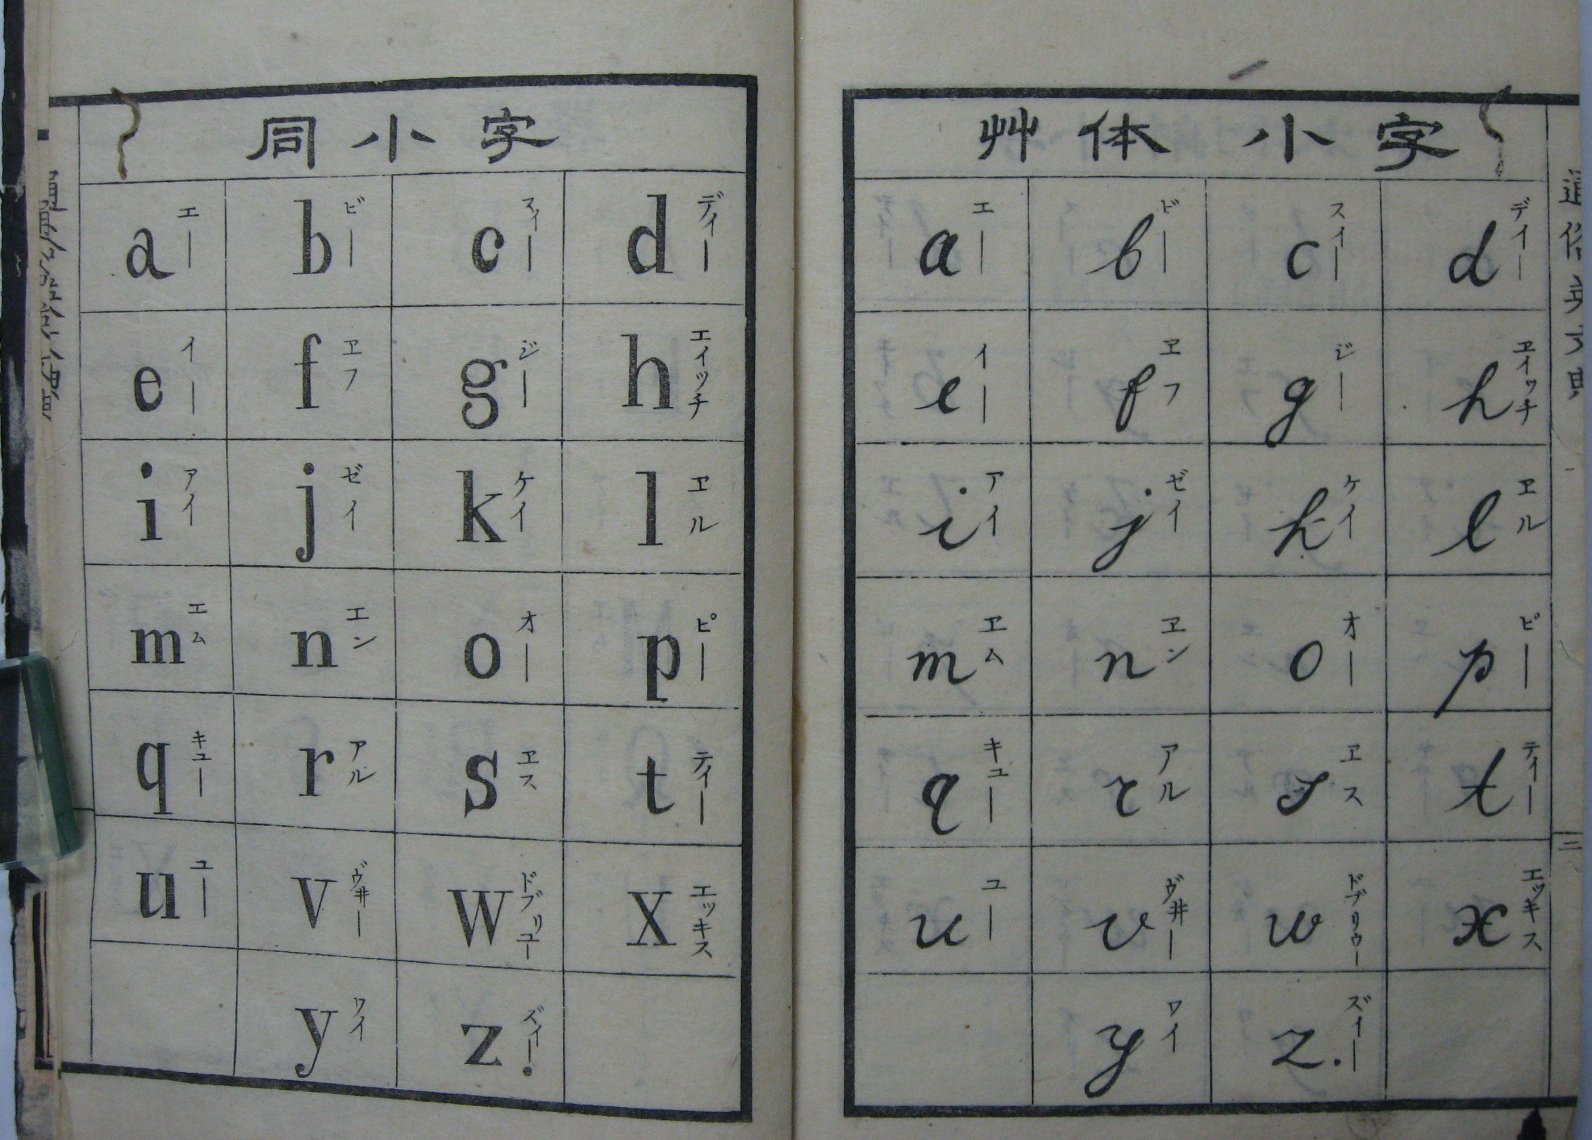 同小字
a エー b ビー c スィー d ディー
e イー f ヱフ g ジー h エイッチ
i アイ j ゼイ k ケイ l ヱル
m エム n エン o オー p ピー
q キュー r アル s ヱス t ティー
u ユー v ヴヰー w ドブリユー x エッキス
y ワイ z ズイー.
艸体小字
a エー b ビー c スイー d デイー
e イー f ヱフ g ジー h ヱイッチ
i アイ j ゼイ k ケイ l ヱル
m ヱム n ヱン o オー p ピー
q キユー r アル s ヱス t テイー
u ユー v ヴヰー w ドブリウー x エッキス
y ワイ z. ズイー
三